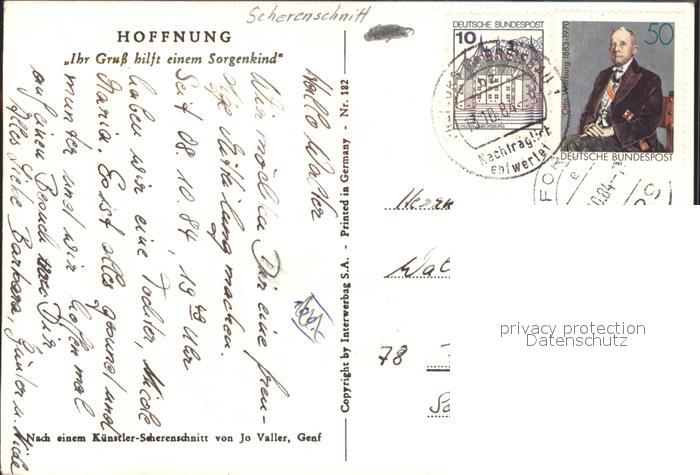 Scherenschnitt
HOFFNUNG
„Ihr Gruß hilft einem Sorgenkind“
Hallo Walter
Wir möchten Dir eine freu-
dige Mitteilung machen.
Seit 08.10.84, 19 48 Uhr
haben wir eine Tochter, Nicole
Maria. Es ist alles gesund und
munter und wir hoffen mal
auf einen Besuch von Dir.
Alles Liebe Barbara, Günter u. Nicole
Nach einem Künstler-Scherenschnitt von Jo Valler, Genf
Copyright by Interwerbag S.A. - Printed in Germany - Nr. 182
DEUTSCHE BUNDESPOST
10
Nachträglich
entwertet
50
1883-1970
DEUTSCHE BUNDESPOST
Herrn
78
privacy protection
Datenschutz